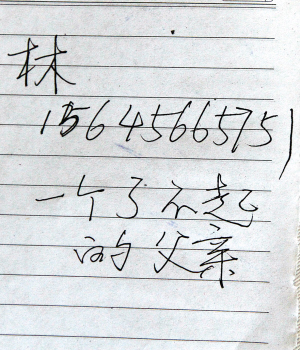 林
15645665751
一个了不起
的父亲